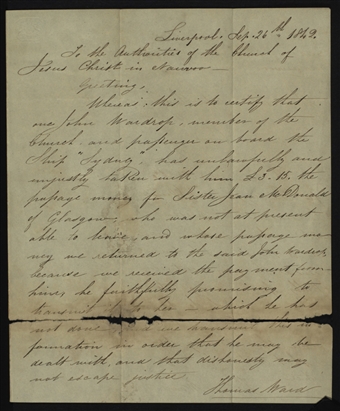 Liverpool. Sep. 26th 1842.
To the Authorities of the Church of
Jesus Christ in Nauvoo
Greeting.
Whereas this is to certify that
one John Wardrop, member of the
Church and passenger on board the
Ship "Sydney" has unlawfully and
unjustly taken with him £3.15. the
passage money for Sister Jean McDonald
of Glasgow, who was not at present
able to leave, and whose passage mo-
ney we returned to the said John Wardrop,
because we received the payment from
him; he faithfully promising to
transmit it to her — which he has
not done. We transmit this in-
formation in order that he may be
dealt with, and that dishonesty may
not escape justice
Thomas Ward